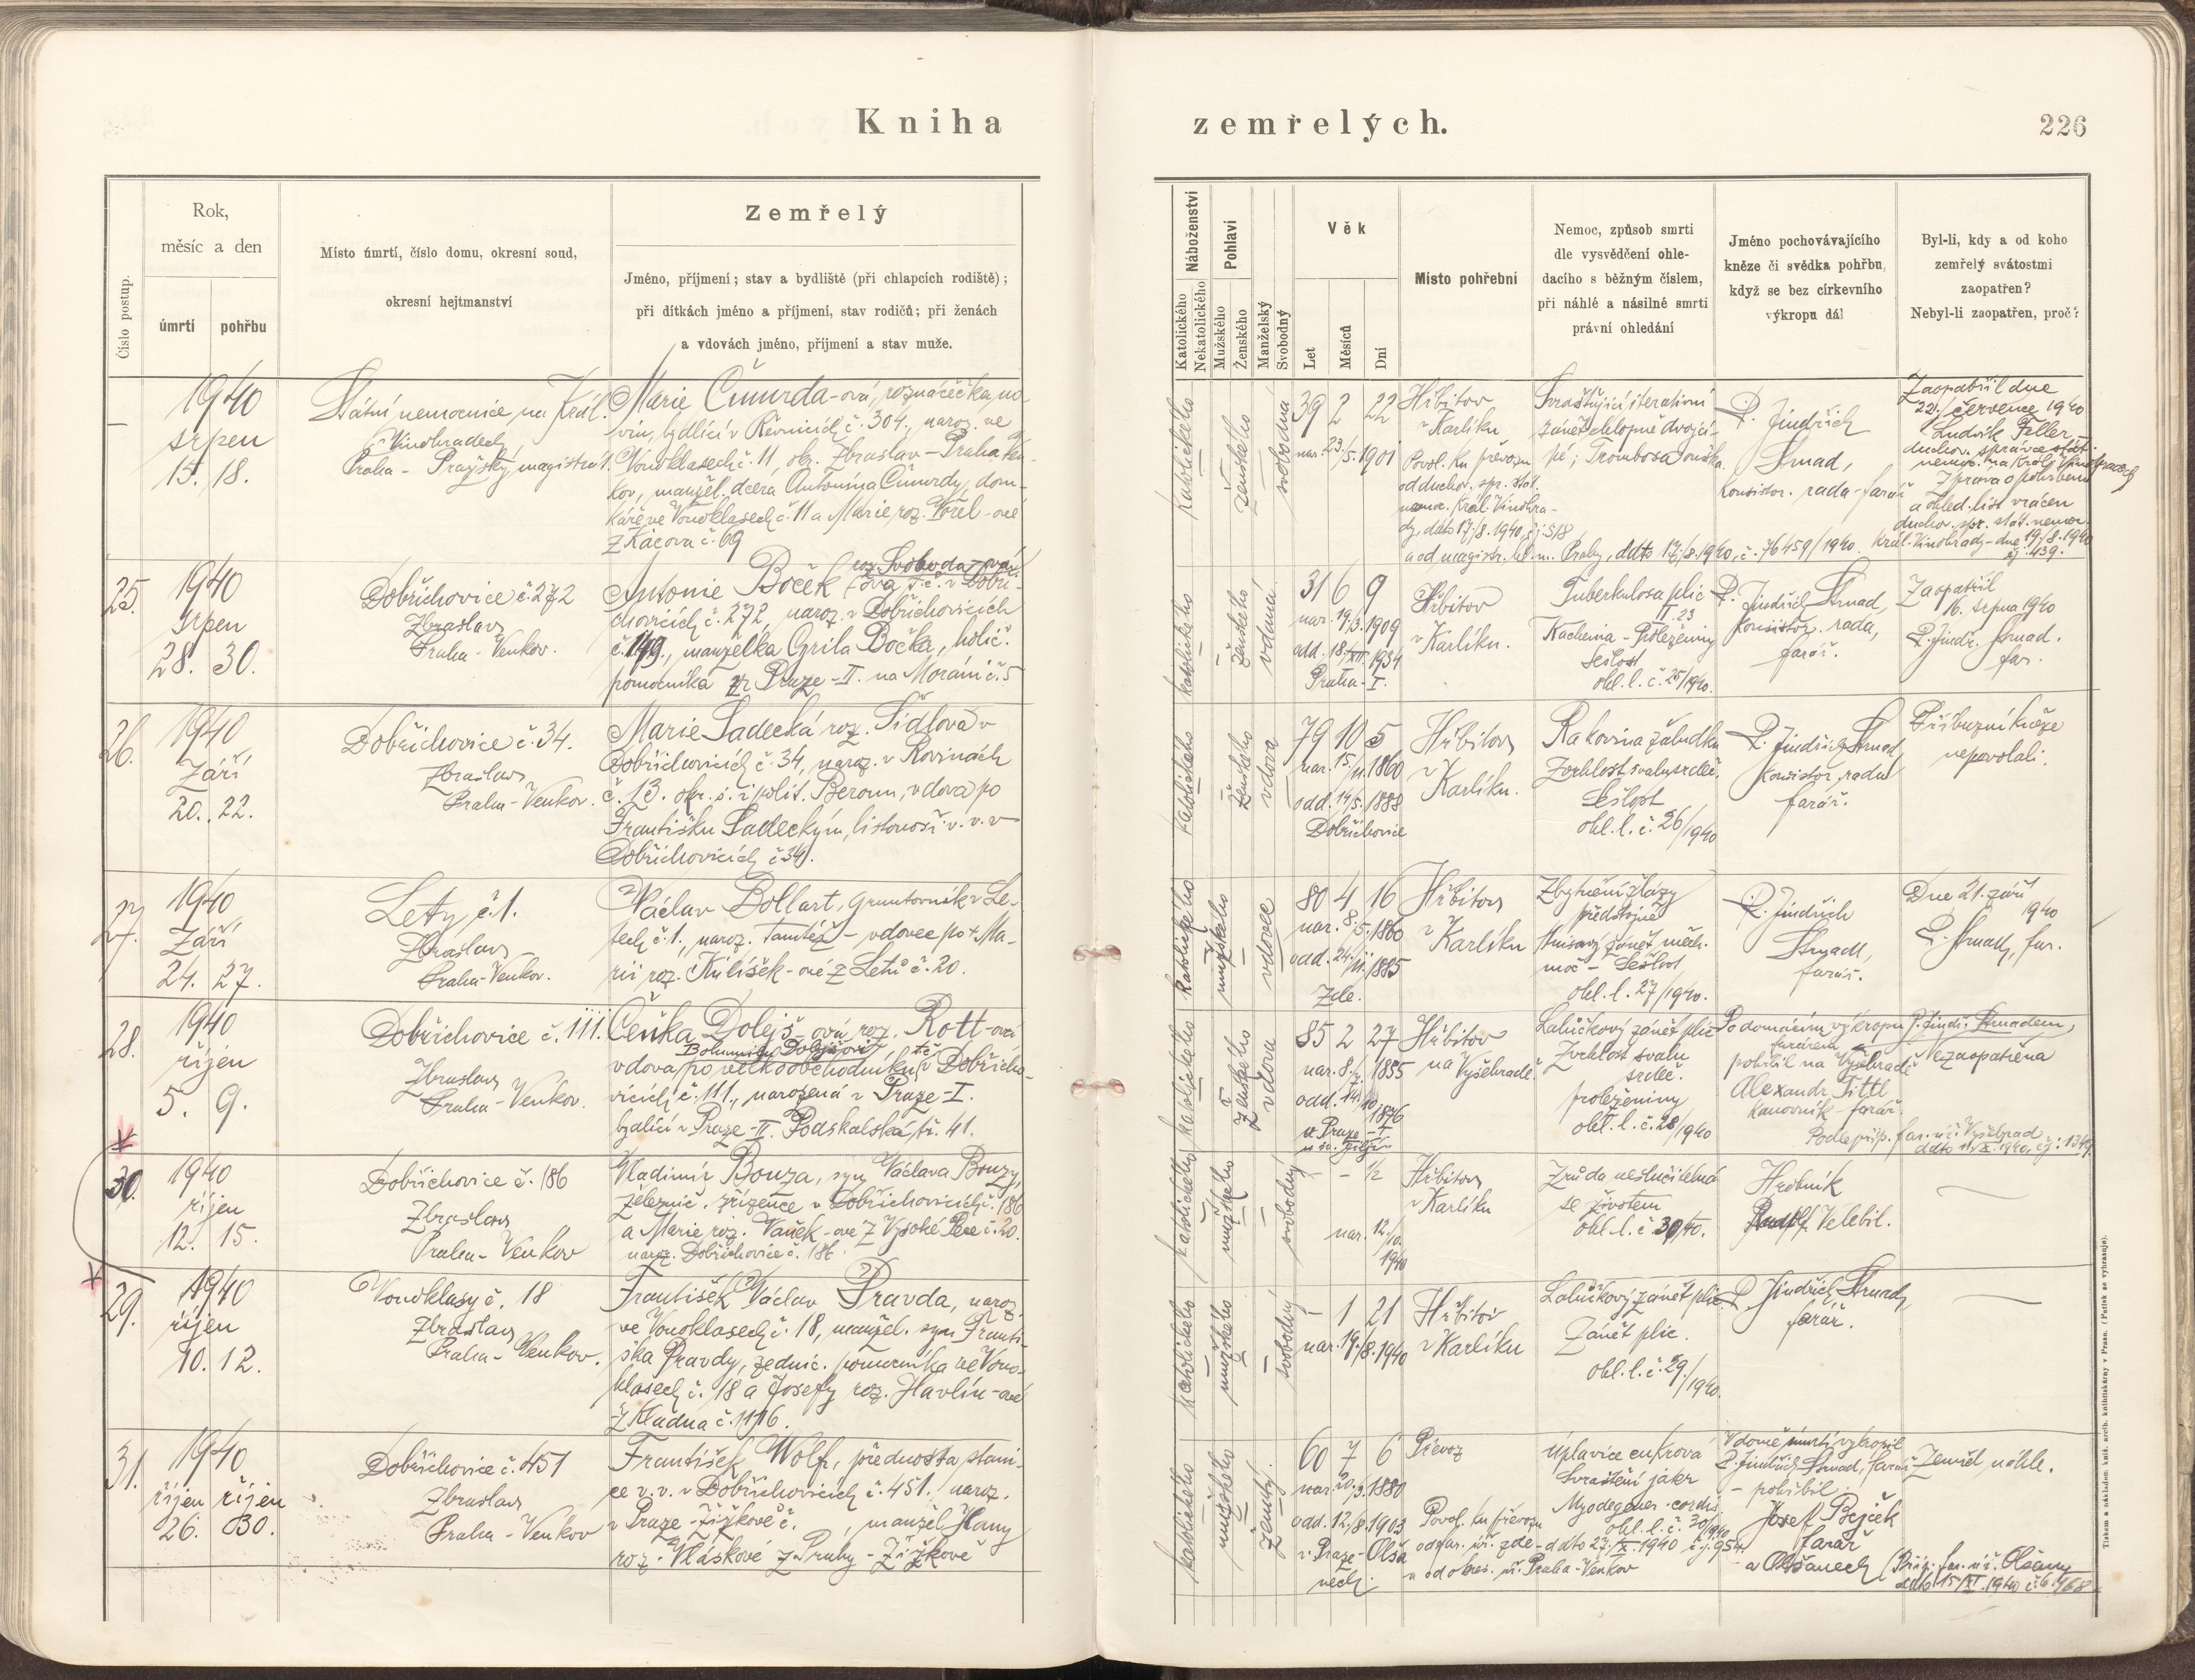 Kniha
zemřelých.
226
Číslo postup.
Rok,
měsíc a den
úmrtí
pohřbu
Místo úmrtí, číslo domu, okresní soud,
okresní hejtmanství
Zemřelý
Jméno, příjmení; stav a bydliště (při chlapcích rodiště);
při dítkách jméno a příjmení, stav rodičů; při ženách
a vdovách jméno, příjmení a stav muže.
Náboženství
Katolického
Nekatolického
Pohlaví
Mužského
Ženského
Manželský
Svobodný
Věk
Let
Měsíců
Dní
Místo pohřební
Nemoc, způsob smrti
dle vysvědčení ohle-
dacího s běžným číslem,
při náhlé a násilné smrti
právní ohledání
Jméno pochovávajícího
kněze či svědka pohřbu,
když se bez církevního
výkropu dál
Byl-li, kdy a od koho
zemřelý svátostmi
zaopatřen?
Nebyl-li zaopatřen, proč?
–
1940
srpen
15. 18.
Státní nemocnice na Král.
Vinohradech,
Praha - Pražský magistrát.
Marie Čmurda-ová, roznášečka no-
vin, bydlící v Řevnicích č. 304., naroz. ve
Vonoklasech č. 11, okr. Zbraslav - Praha Ven-
kov, manžel. dcera Antonína Čmurdy, dom-
káře ve Vonoklasech č. 11 a Marie roz. Vořel-ové
z Kácova č. 69
katolického
ženského
svobodná
39 2 22
nar. 23/5. 1901
Hřbitov
v Karlíku
Povol. ku převozu
od duchov. spr. stát.
nemoc. Král. Vinohra-
dy, ddto 17./8. 1940, č.j. 518
a od magistr. hl. m. Prahy, ddto 17./8. 1940, č. 76459/1940.
Svrašťující iterativní
zánět chlopně dvojcí-
pé; Trombosa ouška.
P. Jindřich
Strnad,
konsistor. rada - farář
Zaopatřil dne
22./ července 1940
Ludvík Feller
duchov. správce stát.
nemoc. na Král. Vinohradech
Zpráva o pohřbení
a ohled. list vrácen
duchov. spr. stát. nemoc.
Král. Vinohrady - dne 19./8. 1940
č.j. 439.
25.
1940
Srpen
28. 30.
Dobřichovice č. 272
Zbraslav
Praha - Venkov.
roz. Svoboda-ová
Antonie Boček-ová t.č. v Dobři-
chovicích č. 272, naroz. v Dobřichovicích
č. 149., manželka Cyrila Bočka, holič.
pomocníka z Praze - II. na Moráni č. 5
katolického
ženského
vdaná
31 6 9
nar. 19/3. 1909
odd. 18/XII. 1934
Praha - I.
Hřbitov
v Karlíku.
Tuberkulosa plic
II. 23
Kachexia - Proleženiny
Sešlost
ohl. l. č. 25/1940.
P. Jindřich Strnad,
konsistor. rada,
farář.
Zaopatřil
16. srpna 1940
P. Jindř. Strnad.
far.
26.
1940
Září
20. 22.
Dobřichovice č. 34.
Zbraslav
Praha - Venkov.
Marie Sadecká roz. Šídlová v
Dobřichovicích č. 34, naroz. v Rovinách
č. 13. okr. s. i polit. Beroun, vdova po
Františku Sadeckým, listonoši v. v. v
Dobřichovicích č. 34.
katolického
ženského
vdova
79 10 5
nar. 15/11. 1860
odd. 14/5. 1888
Dobřichovice
Hřbitov
v Karlíku.
Rakovina žaludku
Zvrhlost svalu srdeč.
Sešlost
ohl. l. č. 26/1940
P. Jindřich Strnad
konsistor. rada
farář.
Příbuzní kněze
nepovolali.
27.
1940
Září
24. 27.
Lety č. 1.
Zbraslav
Praha - Venkov.
Václav Bollart, gruntovník v Le-
tech č. 1., naroz. tamtéž - vdovec po + Ma-
rii roz. Kulíšek-ové z Letů č. 20.
katolického
mužského
vdovec
80 4 16
nar. 8./5. 1860
odd. 24./11. 1885
Zde.
Hřbitov
v Karlíku
Zbytnění žlázy
předstojné
Hnisavý zánět měch.
moč - Sešlost,
ohl. l. 27/1940.
P. Jindřich
Strnad,
farář.
Dne 21. září
1940
P. Strnad, far.
28.
1940
říjen
5. 9.
Dobřichovice č. 111.
Zbraslav
Praha - Venkov.
Čeňka Dolejš-ová roz. Rott-ová
Bohumilu Dolejšovi, t.č.
vdova po velkoobchodníku v Dobřicho-
vicích č. 111., narozená v Praze - I.
bydlící v Praze - II. Podskalská tř. 41.
katolického
ženského
vdova
85 2 27
nar. 8./7. 1855
odd. 14/10 1876
v Praze - I
u sv. Jiljí
Hřbitov
na Vyšehradě.
Lalůčkový zánět plic
Zvrhlost svalu
srdeč.
proleženiny
ohl. l. č. 28/1940
Po domácím výkropu P. Jindř. Strnadem,
farářem
pohřbil na Vyšehradě
Alexandr Tittl
kanovník - farář.
Nezaopatřena
Podle příp. far. úř. Vyšehrad
ddto 11./X. 1940, č.j. 1349.
30.
1940
říjen
12. 15.
Dobřichovice č. 186
Zbraslav
Praha - Venkov
Vladimír Bouza, syn Václava Bouzy,
železnič. zřízence v Dobřichovicích č. 186
a Marie roz. Vaněk-ové z Vysoké Pece č. 20.
naroz. Dobřichovice č. 186.
katolického
mužského
svobodný
– – ½
nar. 12./10.
1940
Hřbitov
v Karlíku
Zrůda neslučitelná
se životem
ohl. l. č. 30/40.
Hrobník
Rudolf Velebil.
29.
1940
říjen
10. 12.
Vonoklasy č. 18
Zbraslav
Praha - Venkov.
František Václav Pravda, naroz.
ve Vonoklasech č. 18, manžel. syn Franti-
ška Pravdy, zednic. pomocníka ve Vono-
klasech č. 18 a Josefy roz. Havlín-ové
z Kladna č. 1176.
katolického
mužského
svobodný
– 1 21
nar. 19./8. 1940
Hřbitov
v Karlíku
Lalůčkový zánět plic
Zánět plic.
ohl. l. č. 29/1940.
P. Jindřich Strnad,
farář.
31.
1940
říjen říjen
26. 30.
Dobřichovice č. 451
Zbraslav
Praha - Venkov
František Wolf, přednosta stani-
ce v. v. v Dobřichovicích č. 451. naroz.
v Praze - Žižkově č. , manžel Hany
roz. Vláskové z Prahy - Žižkově
katolického
mužského
ženatý.
60 7 6
nar. 20./3. 1880
odd. 12./8. 1903
v Praze - Olša
nech.
Převoz
Povol. ku převozu
od far. úř. zde - ddto 27./X. 1940 č.j. 954
a od okres. úř. Praha - Venkov
Úplavice cukrová
Svraštění jater
Myodegener. cordis
ohl. l. č. 30/1940
V domě smrti vykropil
P. Jindřich Strnad, farář
– pohřbil
Josef Bejček
farář
v Olšanech
Zemřel náhle.
(Příp. far. úř. Olšany
ddto 15/XI. 1940
Tiskem a nákladem kníž. arcib. knihtiskárny v Praze. (Patisk se vyhrazuje).